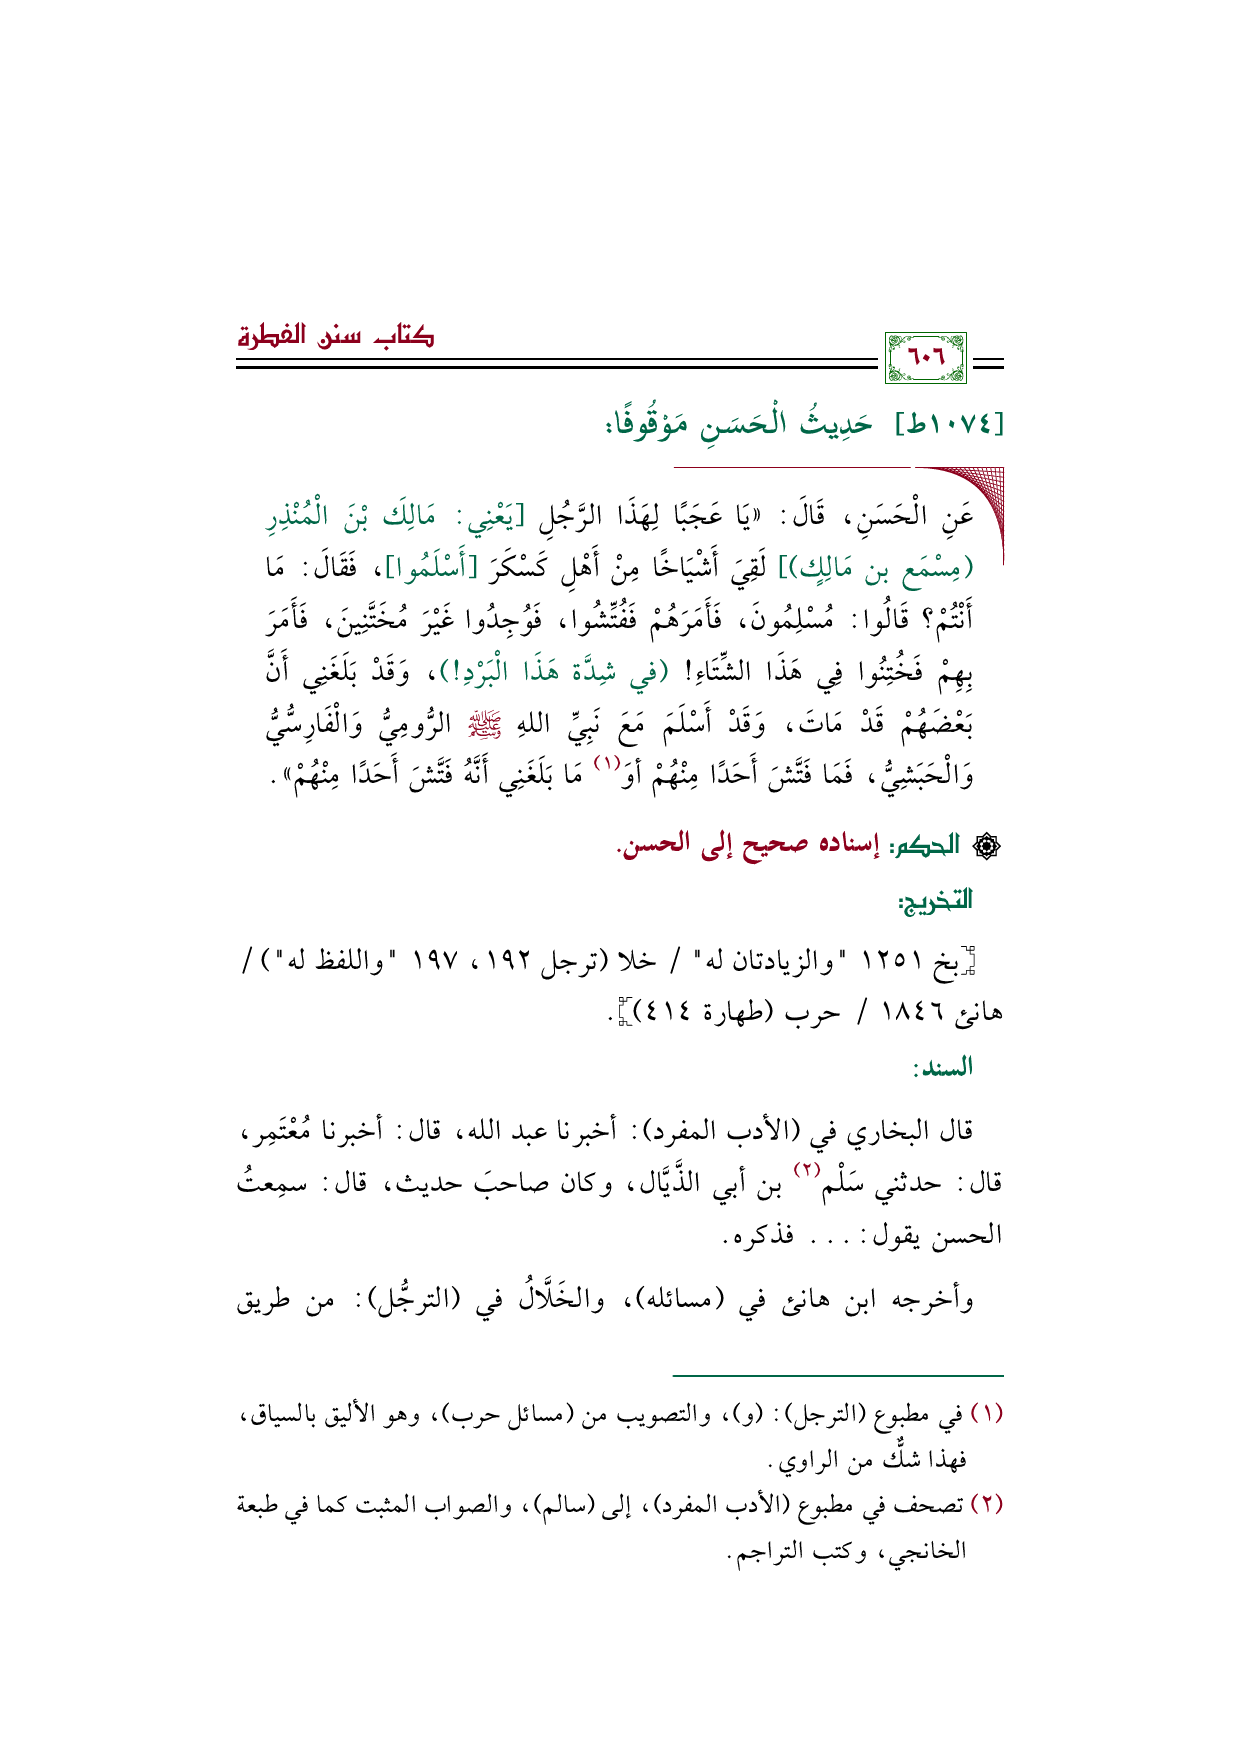 كتاب سنن الفطرة
٦٠٦
[١٠٧٤ط] حَدِيثُ الْحَسَنِ مَوْقُوفًا:
عَنِ الْحَسَنِ، قَالَ: «يَا عَجَبًا لِهَذَا الرَّجُلِ [يَعْنِي: مَالِكَ بْنَ الْمُنْذِرِ
(مِسْمَع بن مَالِكٍ)] لَقِيَ أَشْيَاخًا مِنْ أَهْلِ كَسْكَرَ [أَسْلَمُوا]، فَقَالَ: مَا
أَنْتُمْ؟ قَالُوا: مُسْلِمُونَ، فَأَمَرَهُمْ فَفُتِّشُوا، فَوُجِدُوا غَيْرَ مُخَتَّنِينَ، فَأَمَرَ
بِهِمْ فَخُتِنُوا فِي هَذَا الشِّتَاءِ! (في شِدَّة هَذَا الْبَرْدِ!)، وَقَدْ بَلَغَنِي أَنَّ
بَعْضَهُمْ قَدْ مَاتَ، وَقَدْ أَسْلَمَ مَعَ نَبِيِّ اللهِ ﷺ الرُّومِيُّ وَالْفَارِسُّيُّ
وَالْحَبَشِيُّ، فَمَا فَتَّشَ أَحَدًا مِنْهُمْ أوَ(١) مَا بَلَغَنِي أَنَّهُ فَتَّشَ أَحَدًا مِنْهُمْ».
الحكم: إسناده صحيح إلى الحسن.
التخريج:
[بخ ١٢٥١ "والزيادتان له" / خلا (ترجل ١٩٢، ١٩٧ "واللفظ له") /
هانئ ١٨٤٦ / حرب (طهارة ٤١٤)].
السند:
قال البخاري في (الأدب المفرد): أخبرنا عبد الله، قال: أخبرنا مُعْتَمِر،
قال: حدثني سَلْم(٢) بن أبي الذَّيَّال، وكان صاحبَ حديث، قال: سمِعتُ
الحسن يقول: . . . فذكره.
وأخرجه ابن هانئ في (مسائله)، والخَلَّالُ في (الترجُّل): من طريق
(١) في مطبوع (الترجل): (و)، والتصويب من (مسائل حرب)، وهو الأليق بالسياق،
فهذا شكٌّ من الراوي.
(٢) تصحف في مطبوع (الأدب المفرد)، إلى (سالم)، والصواب المثبت كما في طبعة
الخانجي، وكتب التراجم.